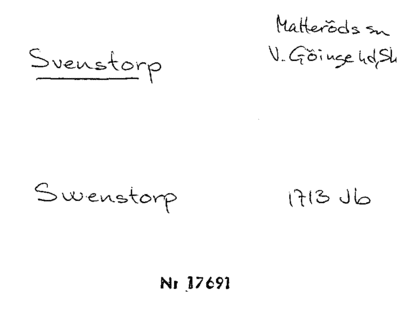 Svenstorp
Matteröds sn
V. Göinge hd, Sk
Swenstorp
1713 Jb
Nr 17691